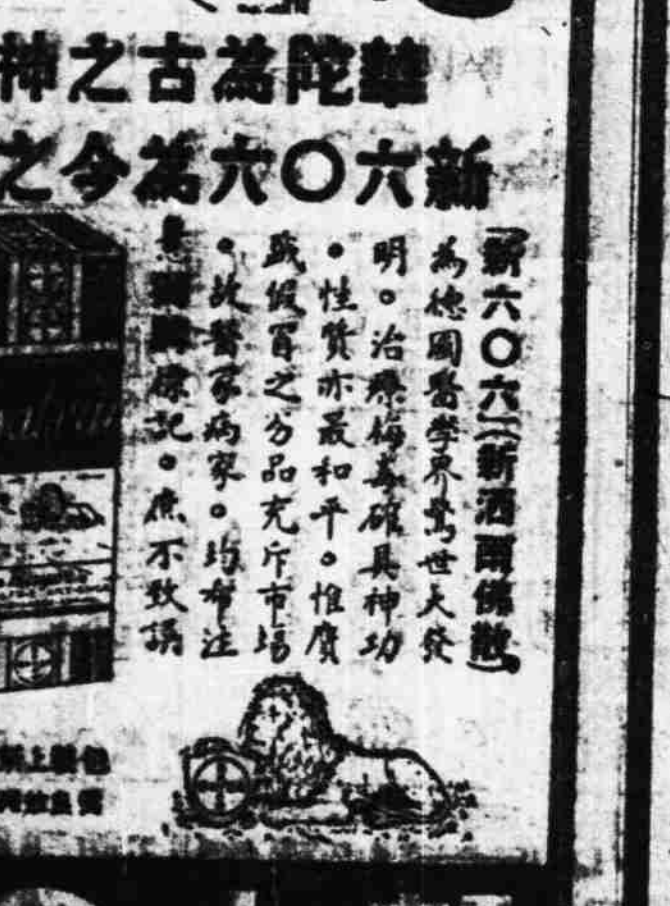 華陀為古之神
新六〇六為今之
(新六〇六)(新洒爾佛散)
為德國醫學界驚世大發
明。治療梅毒確具神功
。性質亦最和平。惟贋
或假冒之劣品充斥市場
。故醫家病家。均希注
意獅牌標記。庶不致誤